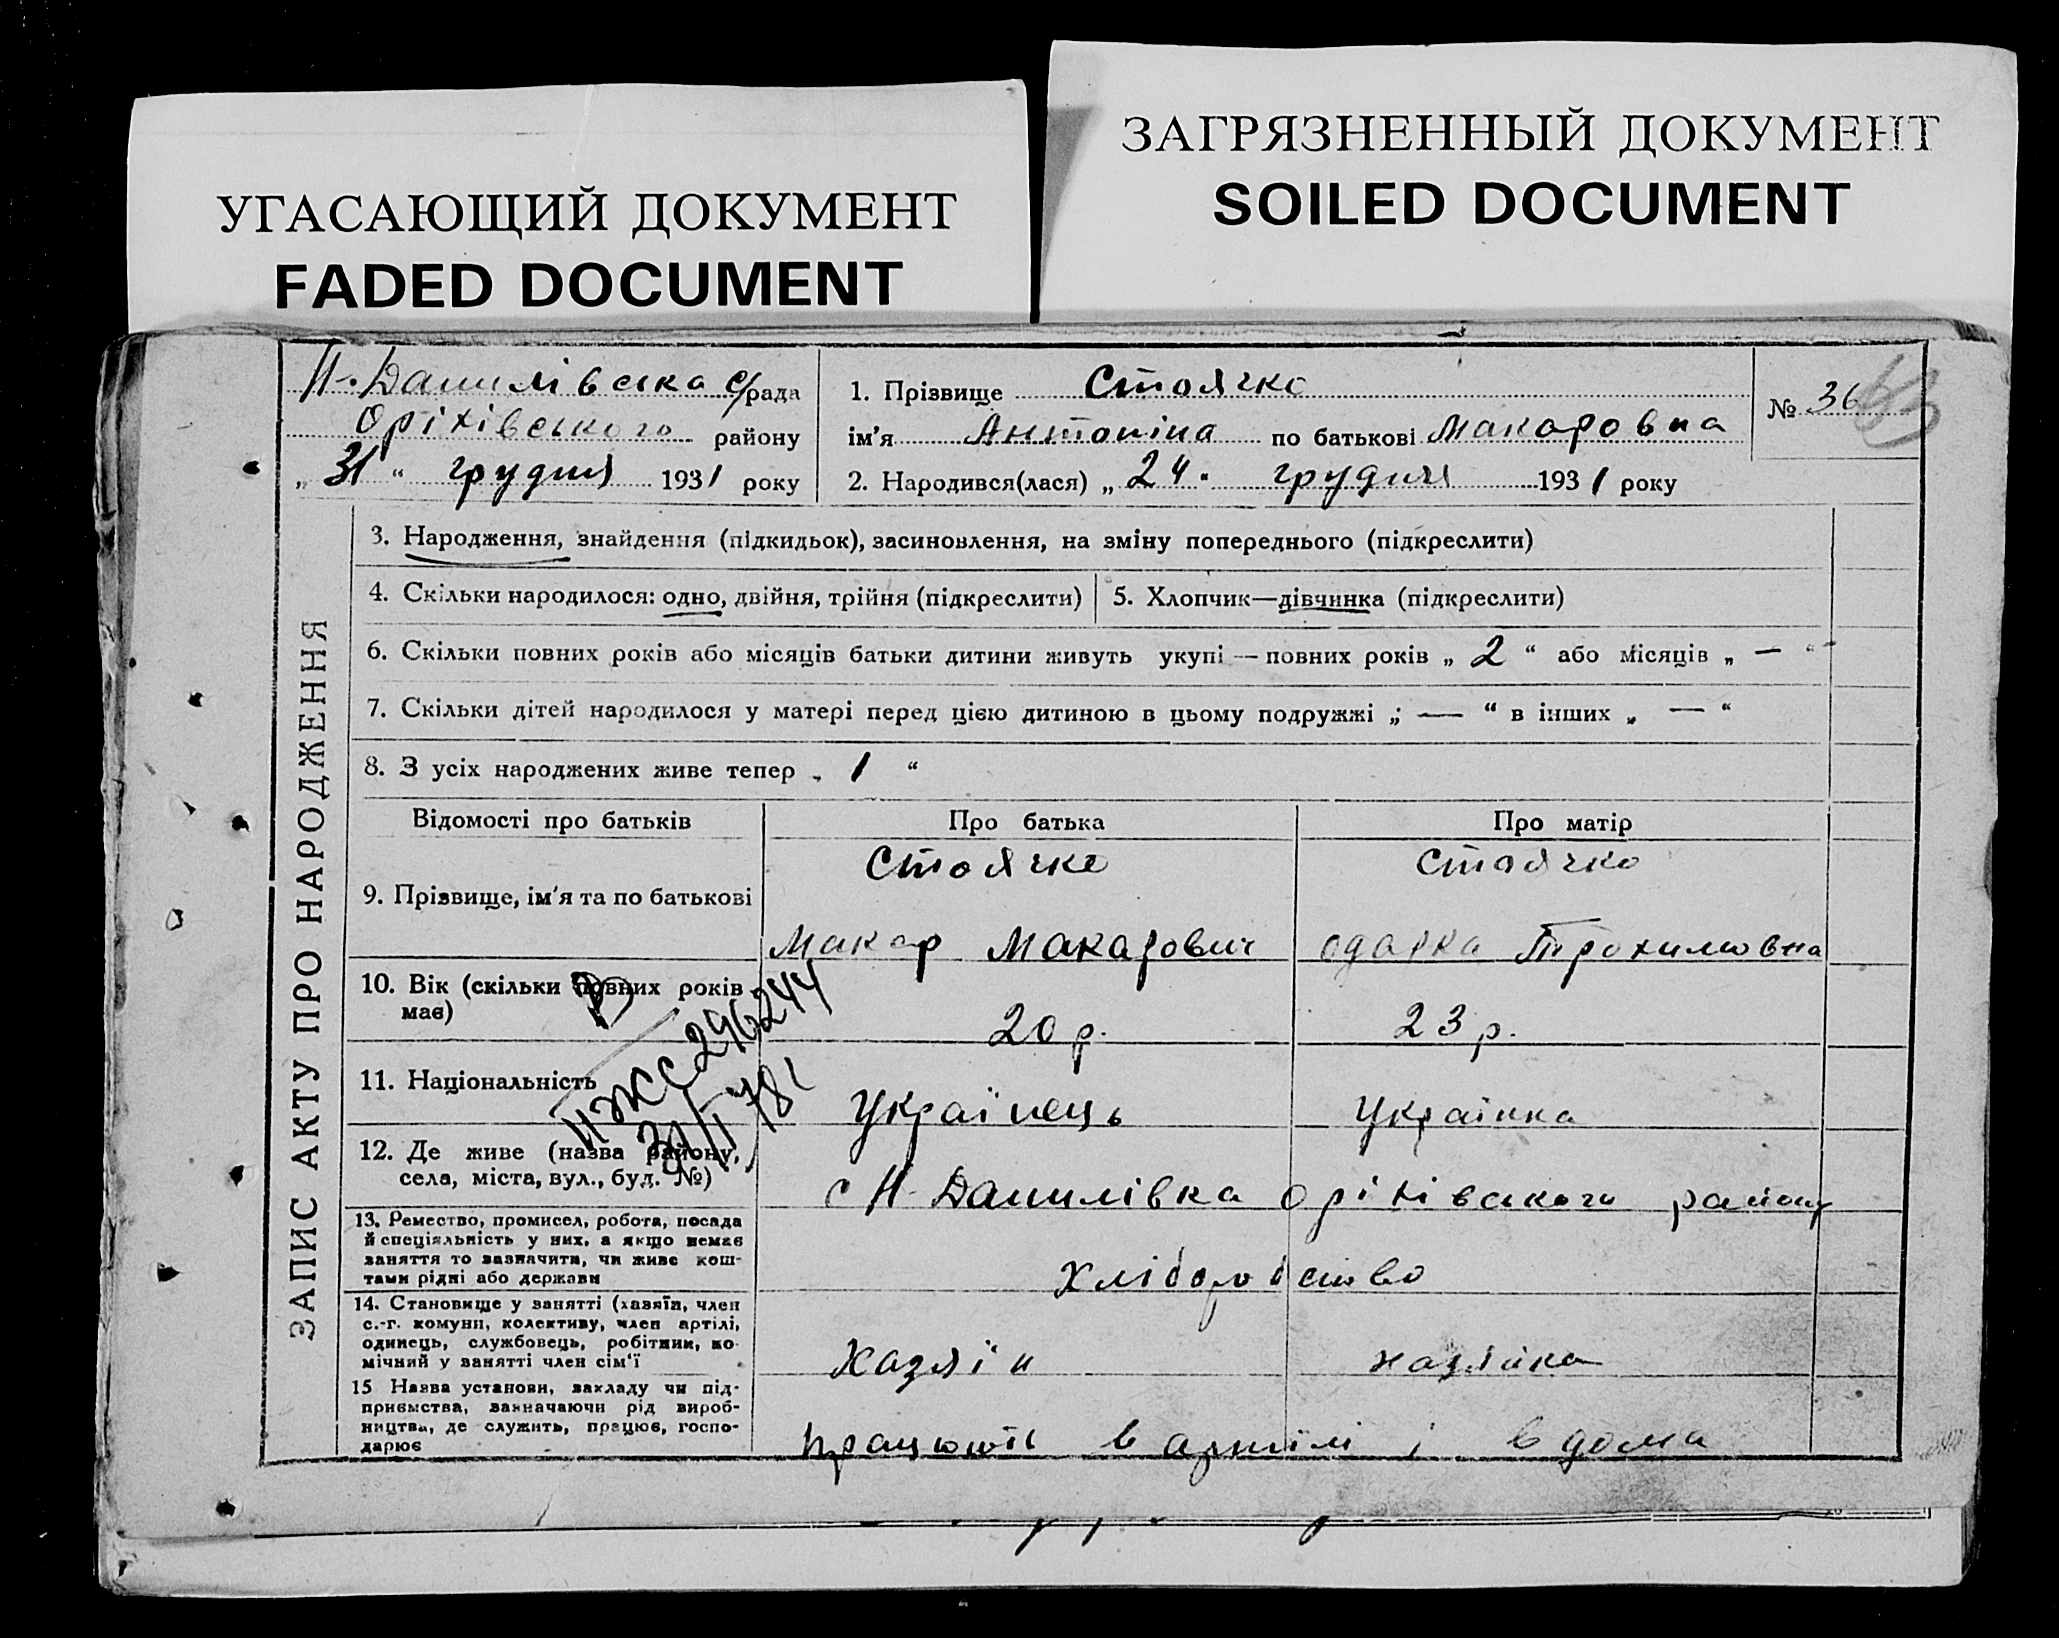 УГАСАЮЩИЙ ДОКУМЕНТ
FADED DOCUMENT
ЗАГРЯЗНЕННЫЙ ДОКУМЕНТ
SOILED DOCUMENT
Н-Данилівська с/рада
Оріхівського району
„ 31 “ грудня 1931 року
1. Прізвище Стоячко
ім'я Антоніна по батькові Макаровна
№ 36
2. Народився(лася) „ 24. грудня 1931 року
ЗАПИС АКТУ ПРО НАРОДЖЕННЯ
3. Народження, знайдення (підкидьок), засиновлення, на зміну попереднього (підкреслити)
4. Скільки народилося: одно, двійня, трійня (підкреслити)
5. Хлопчик—дівчинка (підкреслити)
6. Скільки повних років або місяців батьки дитини живуть укупі — повних років „ 2 “ або місяців „ — “
7. Скільки дітей народилося у матері перед цією дитиною в цьому подружжі „ — “ в інших „ — “
8. З усіх народжених живе тепер „ 1 “
Відомості про батьків Про батька Про матір
9. Прізвище, ім'я та по батькові
Стоячко
Макар Макарович
Стоячко
Одарка Трохимовна
10. Вік (скільки повних років має)
20 р.
23 р.
11. Національність
Українець
Українка
12. Де живе (назва району,
села, міста, вул., буд. №)
с Н-Данилівка Оріхівського району
13. Ремество, промисел, робота, посада
й спеціяльність у них, а якщо немає
заняття то зазначити, чи живе кош-
тами рідні або держави
Хліборобство
14. Становище у занятті (хазяїн, член
с.-г. комуни, колективу, член артілі,
одинець, службовець, робітник, по-
мічний у занятті член сім'ї
Хазяін
хазяйка
15 Назва установи, закладу чи під-
приємства, зазначаючи рід вироб-
ництва, де служить, працює, госпо-
дарює
працюють в артілі і вдома
296244